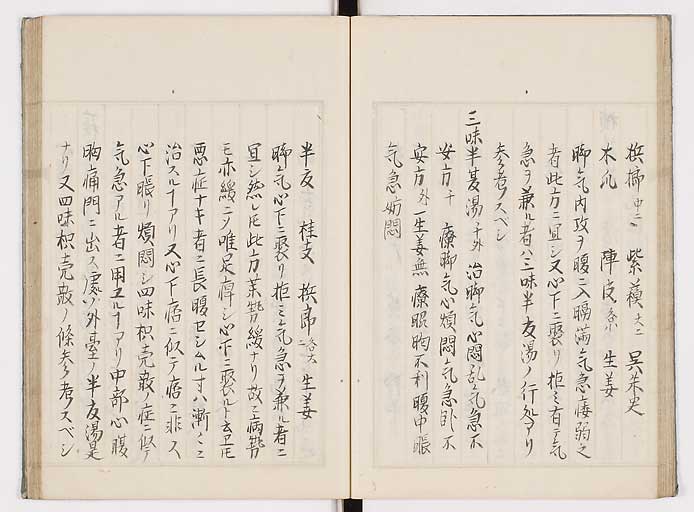 檳榔 中二 紫蘇 大二 呉茱臾
木瓜 陳皮 各小 生姜
脚気内攻ヲ腹ニ入腸満気急悽弱之
者此方ニ宜シ又心下ニ裵リ拒ミ有テ気
急ヲ兼ル者ハ三味半夏湯ノ行処アリ
参考スベシ
三味半夏湯 千外 治脚気心悶乱気急不
安方 千 療脚気心煩悶気急卧不
安方 外 一生姜無療眠胸不利腹中脹
気急妨悶
半夏 桂支 檳榔 各大二 生姜
脚気心下ニ裵リ拒ミ気急ヲ兼ル者ニ
宜シ然レ𪜈此方薬勢緩ナリ故ニ病勢
モ亦緩ニノ唯足痺シ心下ニ裵ルト云𪜈
悪症ナキ者ニ長腹セシムル寸ハ漸〱ニ
治スルヿアリ又心下痞ニ似テ痞ニ非ス
心下脹リ煩悶シ四味枳壳散ノ症ニ似テ
気急アル者ニ用ユルヿアリ中部心腹
胸痛門ニ出ス処ノ外臺ノ半夏湯是
ナリ又四味枳壳散ノ條参考スベシ